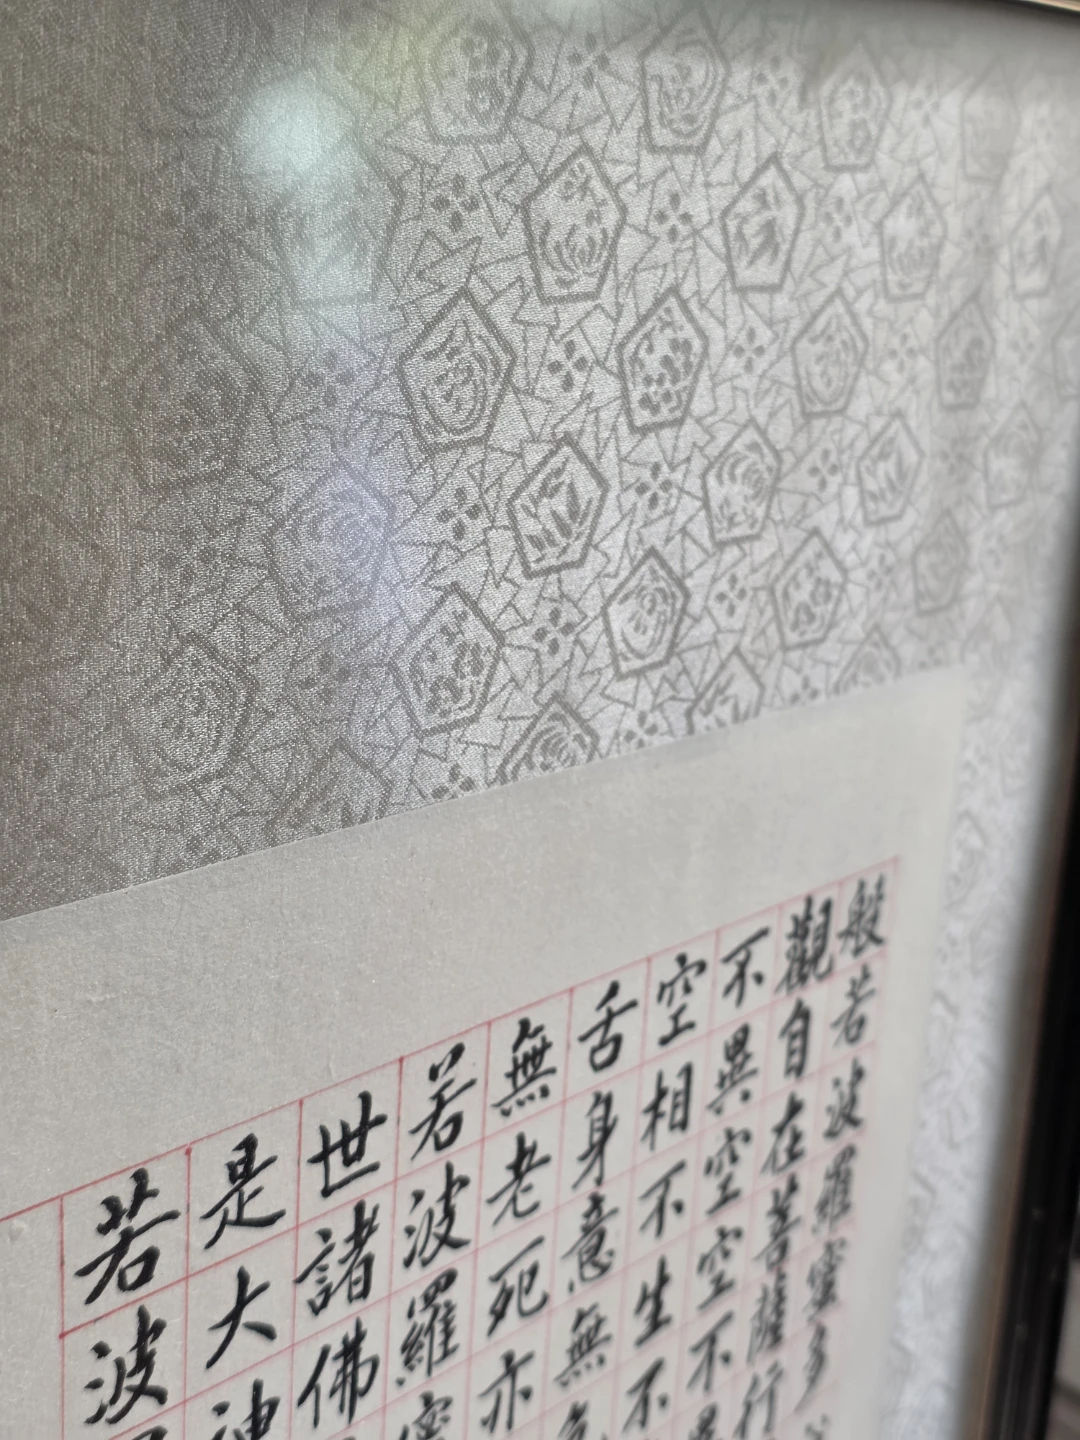 般若波羅蜜多
觀自在菩薩行
不異空空不異
空相不生不
舌身意無色
無老死亦
若波羅蜜
世諸佛
是大神
若波羅